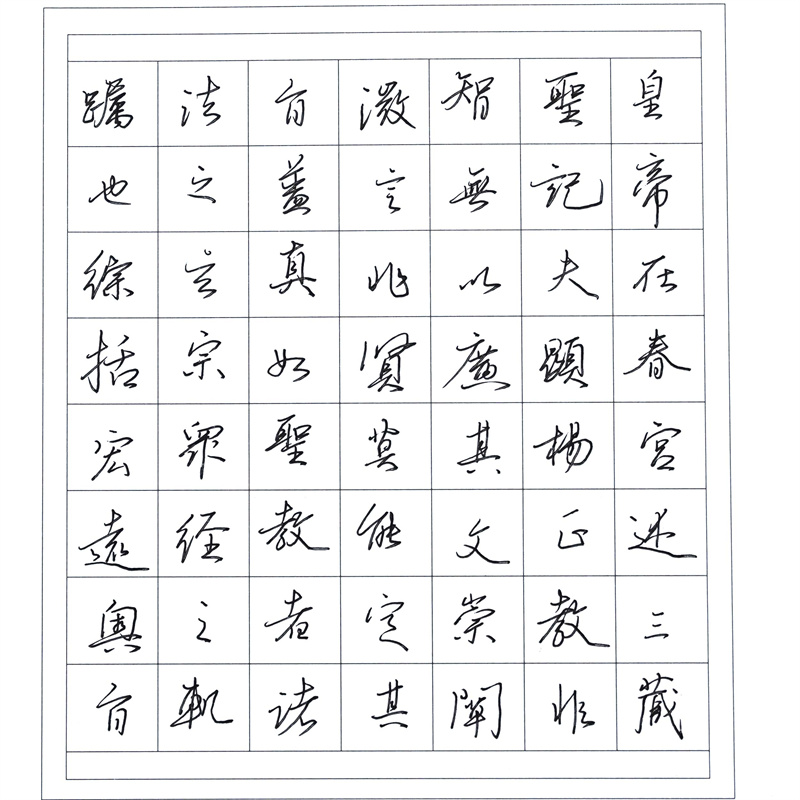 皇帝在春宮述三藏
聖記夫顕楊正教非
智無以廣其文崇闡
微言非賢莫能定其
旨蓋真如聖教者諸
法之玄宗眾経之軌
躅也綜括宏遠奧旨